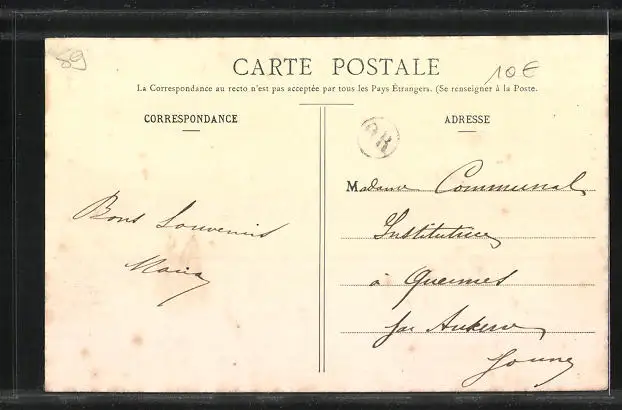 89
CARTE POSTALE
10€
La Correspondance au recto n'est pas acceptée par tous les Pays Étrangers. (Se renseigner à la Poste.
CORRESPONDANCE
ADRESSE
OR
Madame Communal
Institutrice
Bons Souvenirs
Maria
à Quennes
par Auxerre
Yonne